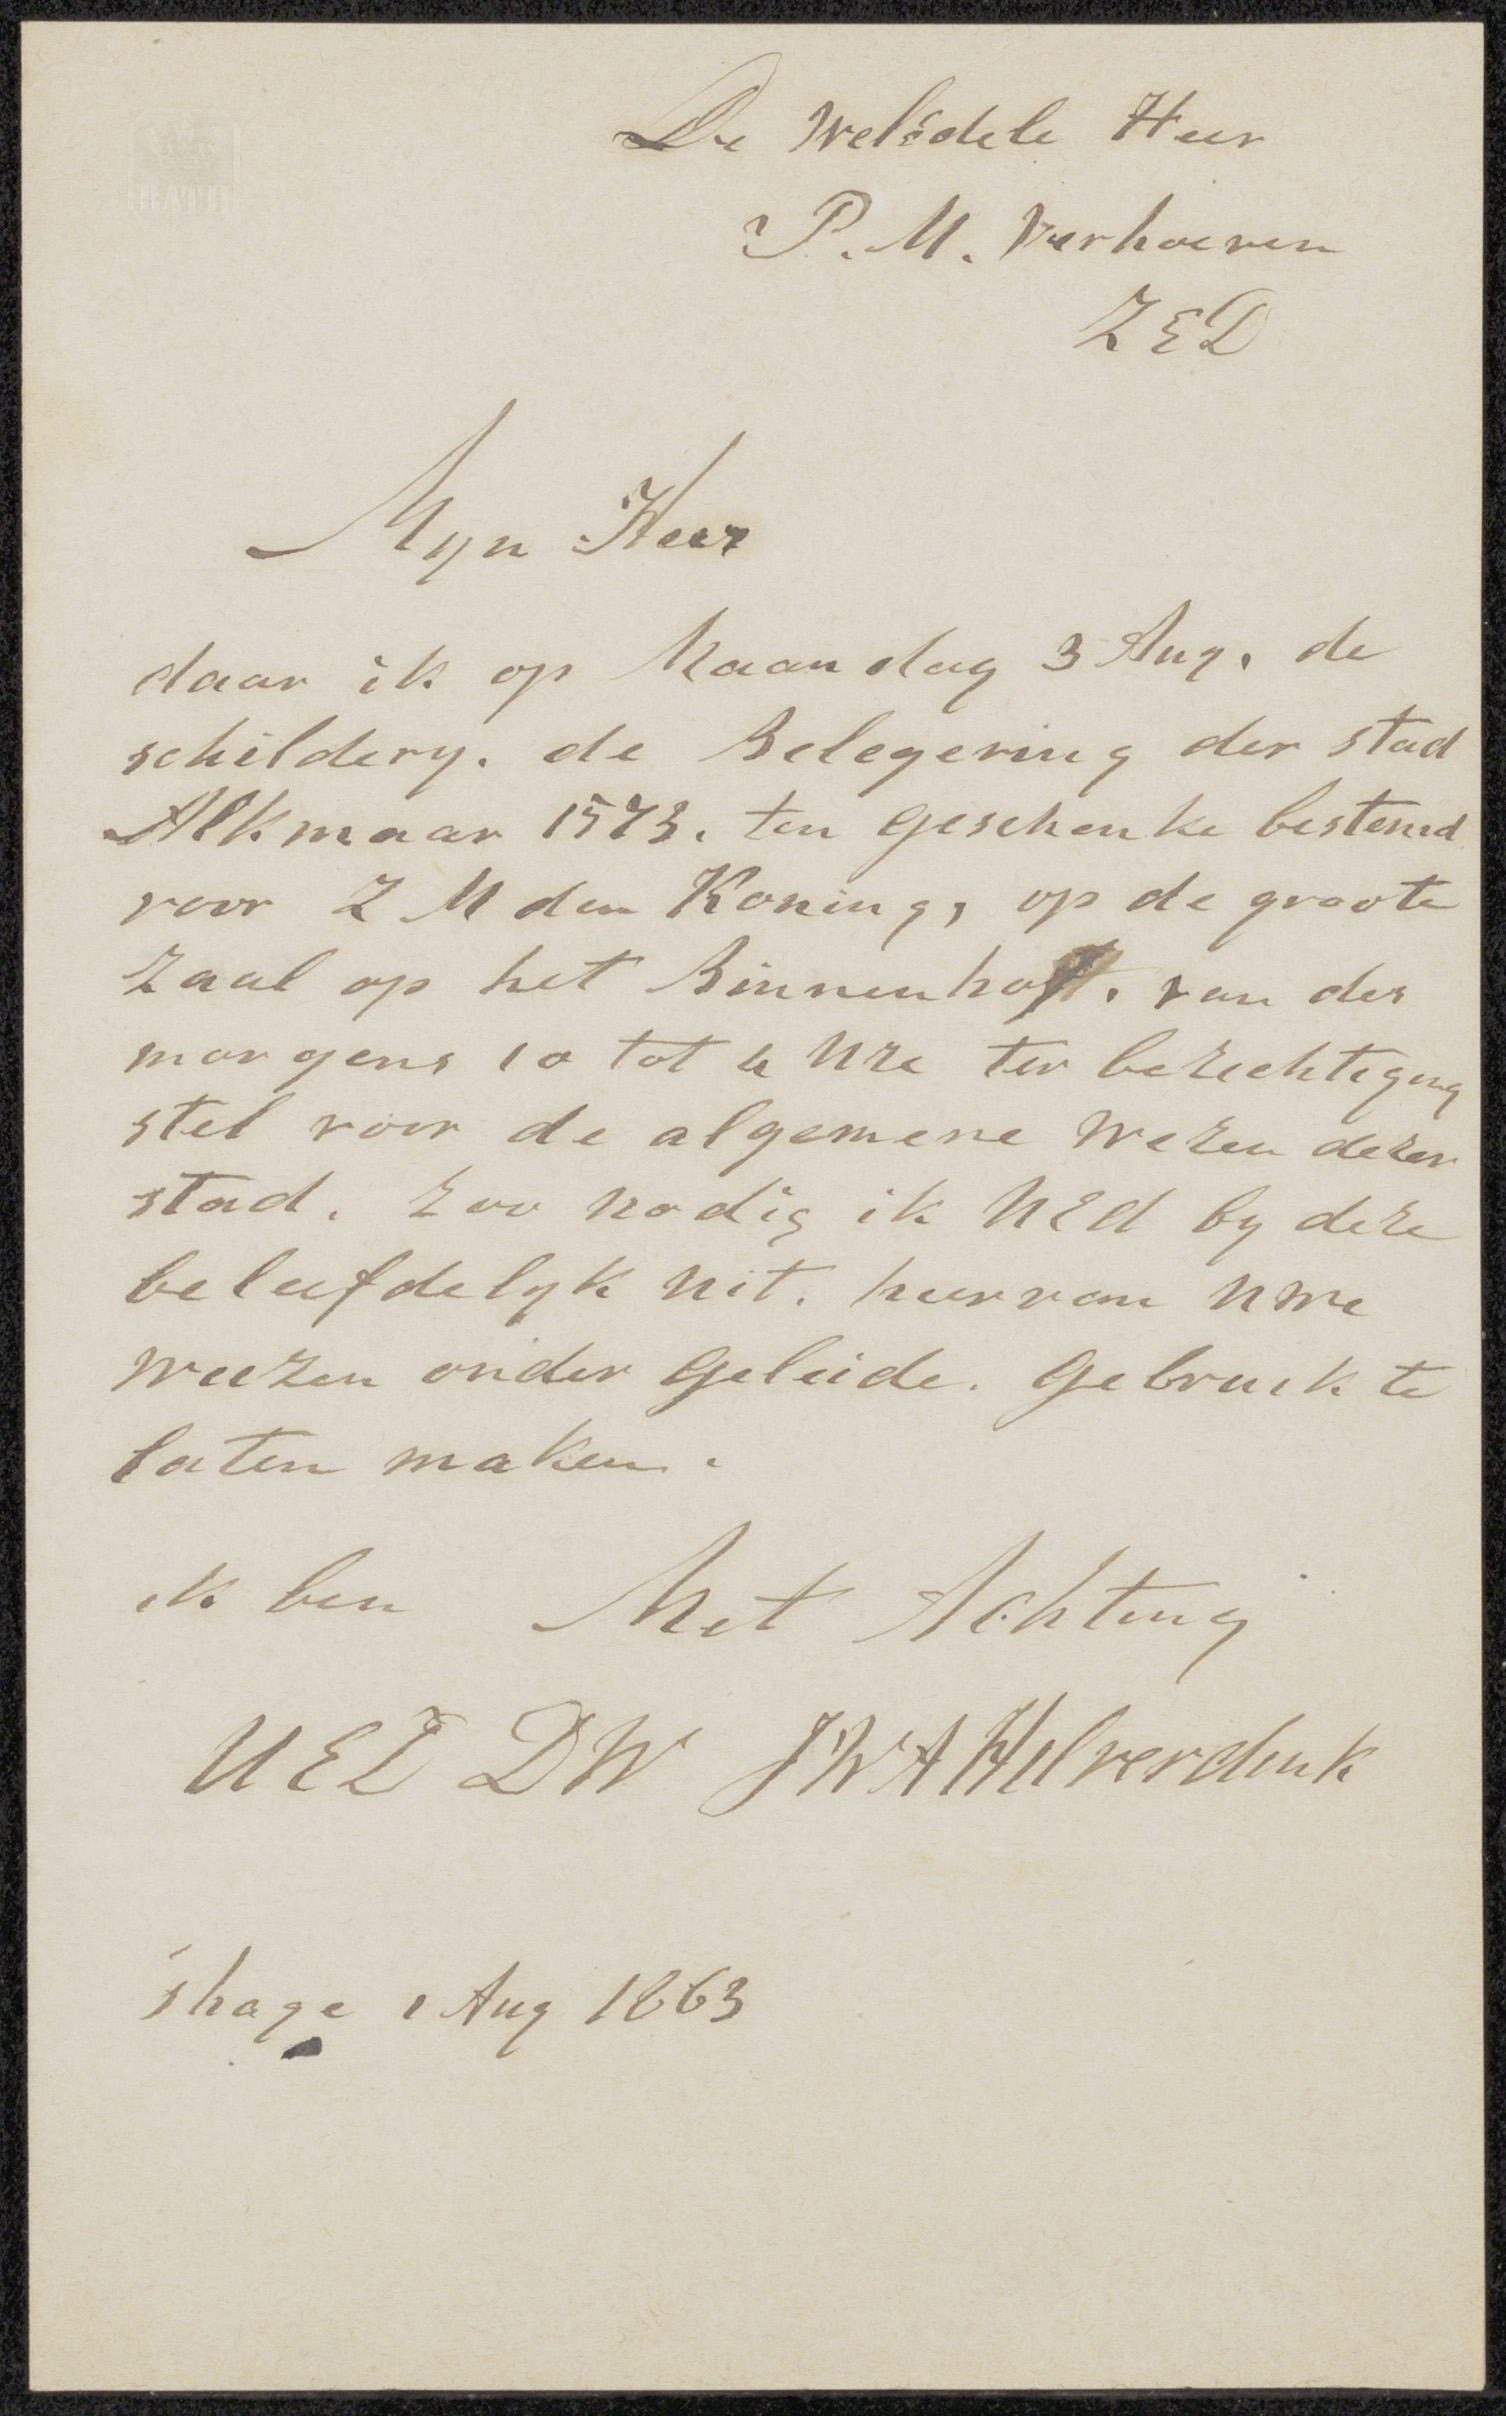 De Weledele Heer
P. M. Verhoeven
ZED
Myn Heer
daar ik op Maandag 3 Aug. de
schildery. de Belegering der stad
Alkmaar 1573. ten geschenke bestemd
voor Z M den Koning, op de groote
zaal op het Binnenhof. van des
morgens 10 tot 4 Ure ter bezichtiging
stel voor de algemene Wezen dezer
stad. zoo nodig ik UEd by deze
beleefdelyk uit. hiervan Uwe
Weezen onder geleide. gebruik te
laten maken.
ik ben Met Achting
UED DW JWA Hilverdink
'shage 1 Aug 1863